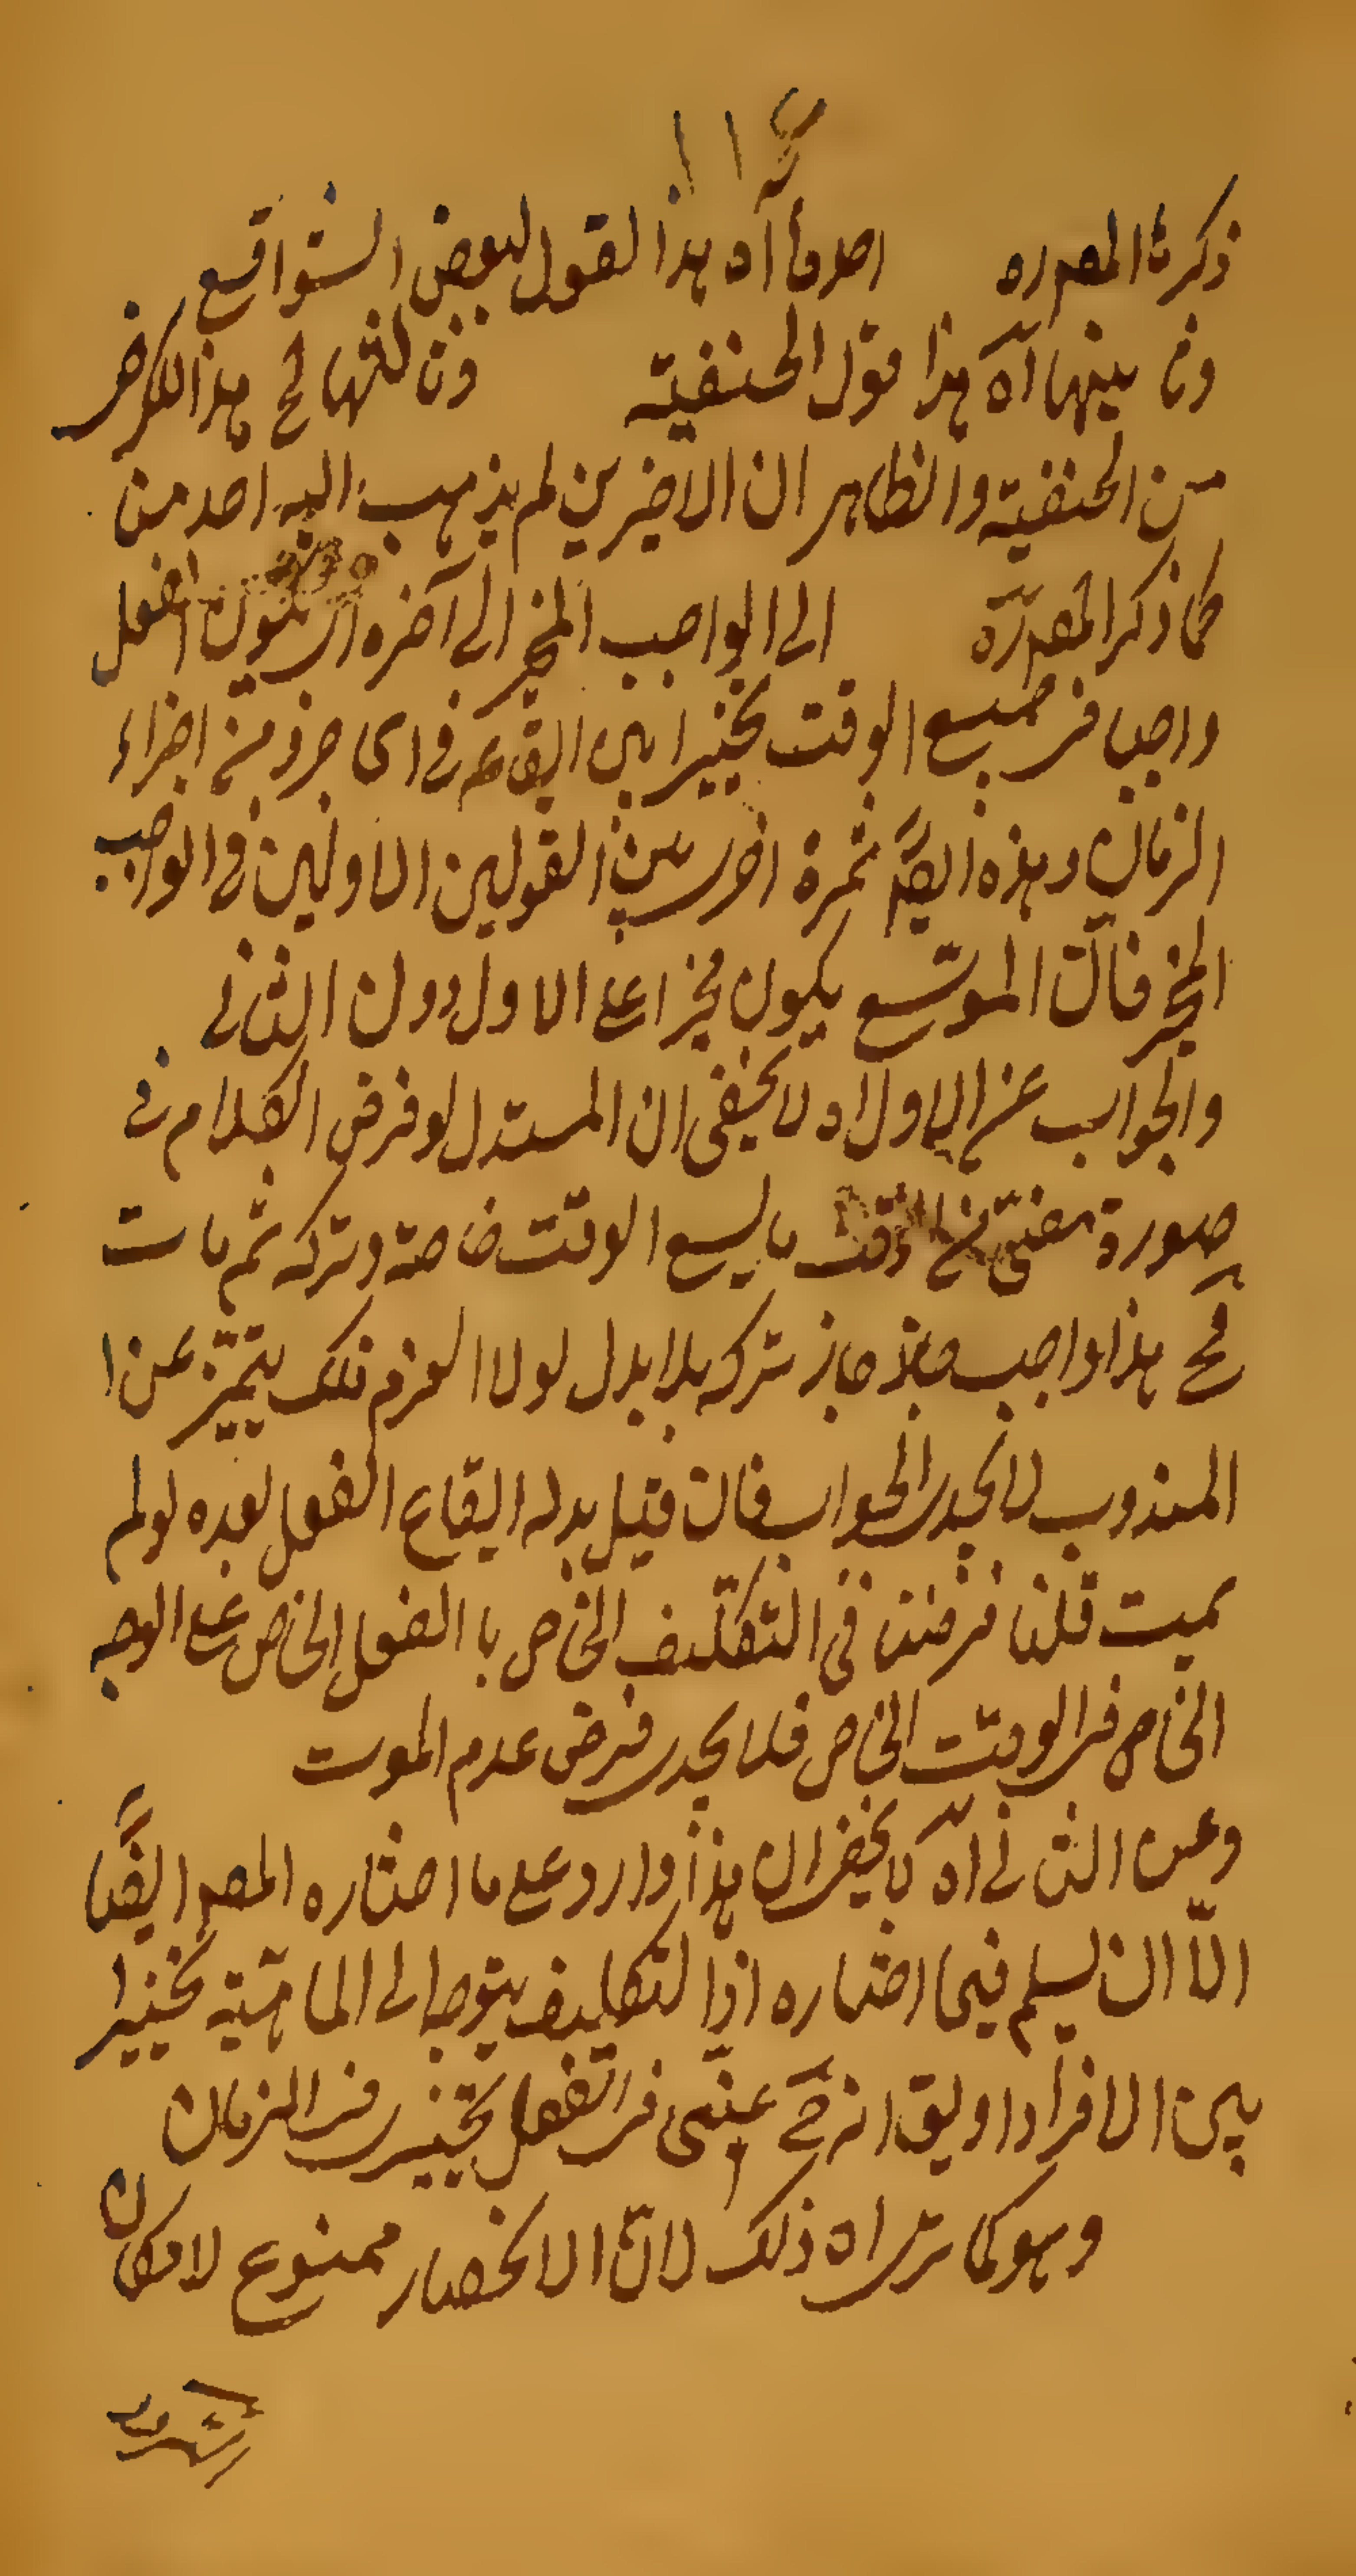 ذكره المصره احدها آه هذا القول لبعض الشوافع
وثانيها آه هذا قول الحنفية وثالثها لح هذا للكرخى
من الحنفية والظاهر ان الاخيرين لم يذهب اليه احد من
كما ذكر المصره الى الواجب المخير الى آخره اى يكون الفعل
واجبا فى جميع الوقت تخييرا بين ايقاعه فى اى جزء من اجزاء
الزمان وهذه ايضا ثمرة اخرى بين القولين الاولين فى الواجب
المخير فان الموسع يكون مخيرا على الاول دون الثانى
والجواب عن الاول اه لا يخفى ان المستدل لو فرض الكلام فى
صورة مضى من الوقت ما يسع الوقت خاصة وتركه ثم مات
فح هذا واجب جاز تركه بلا بدل لولا العزم فلك يتميز عن ا
المندوب لا يجدى الجواب فان قيل بدله ايقاع الفعل بعده لو لم
يمت قلنا فرضنا فى التكليف الخاص با الفعل الخاص على الوجه
الخاص فى الوقت الخاص فلا يجدى فرض عدم الموت
وعن الثانى اه لا يخفى ان هذا وارد على ما اختاره المص ايضا
الّا ان يسلم فيما اختاره اذا التكليف يتوجه الى الماهية تخييرا
بين الافراد او يق انه ح عينى فى الفعل تخيير فى الزمان
وهو كما ترى اه ذلك لانّ الانحصار ممنوع لامكان